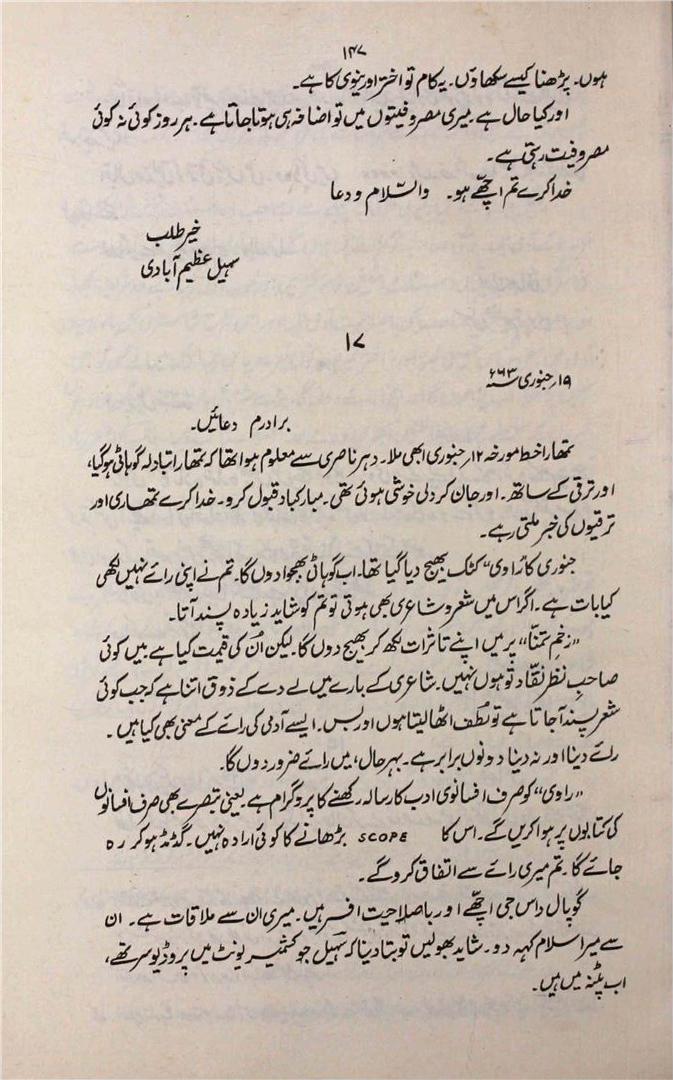 ۱۴۷
ہوں۔ پڑھنا کیسے سکھاؤں۔ یہ کام تو اختر اورینوی کا ہے۔
اور کیا حال ہے۔ میری مصروفیتوں میں تو اضافہ ہی ہوتا جاتا ہے۔ ہر روز کوئی نہ کوئی
مصروفیت رہتی ہے۔
خدا کرے تم اچھّے ہو۔ والسّلام و دعا
خیر طلب
سہیل عظیم آبادی
۱۷
۱۹؍ جنوری ۶۶۳
برادرم دعائیں۔
تمھارا خط مورخہ ۱۲؍ جنوری ابھی ملا۔ دہر ناصری سے معلوم ہوا تھا کہ تمھارا تبادلہ گوہاٹی ہو گیا،
اور ترقی کے ساتھ۔ اور جان کر دلی خوشی ہوئی تھی۔ مبارکباد قبول کرو۔ خدا کرے تمھاری اور
ترقیوں کی خبر ملتی رہے۔
جنوری کا "راوی" کٹک بھیج دیا گیا تھا۔ اب گوہاٹی بھجوا دوں گا۔ تم نے اپنی رائے نہیں لکھی
کیا بات ہے۔ اگر اس میں شعر و شاعری بھی ہوتی تو تم کو شاید زیادہ پسند آتا۔
"زخمِ تمنّا" پر میں اپنے تاثرات لکھ کر بھیج دوں گا۔ لیکن اُن کی قیمت کیا ہے۔ میں کوئی
صاحبِ نظر نقّاد تو ہوں نہیں۔ شاعری کے بارے میں لے دے کے ذوق اتنا ہے کہ جب کوئی
شعر پسند آ جاتا ہے تو لطف اٹھا لیتا ہوں اور بس۔ ایسے آدمی کی رائے کے معنی بھی کیا ہیں۔
رائے دینا اور نہ دینا دونوں برابر ہے۔ بہرحال، میں رائے ضرور دوں گا۔
"راوی" کو صرف افسانوی ادب کا رسالہ رکھنے کا پروگرام ہے۔ یعنی تبصرے بھی صرف افسانوں
کی کتابوں پر ہوا کریں گے۔ اس کا SCOPE بڑھانے کا کوئی ارادہ نہیں۔ گڈمڈ ہو کر رہ
جائے گا۔ تم میری رائے سے اتفاق کرو گے۔
گوپال داس جی اچھّے اور باصلاحیت افسر ہیں۔ میری ان سے ملاقات ہے۔ ان
سے میرا سلام کہہ دو۔ شاید بھولیں تو بتا دینا کہ سہیل جو کشمیر یونٹ میں پروڈیوسر تھے،
اب پٹنہ میں ہیں۔